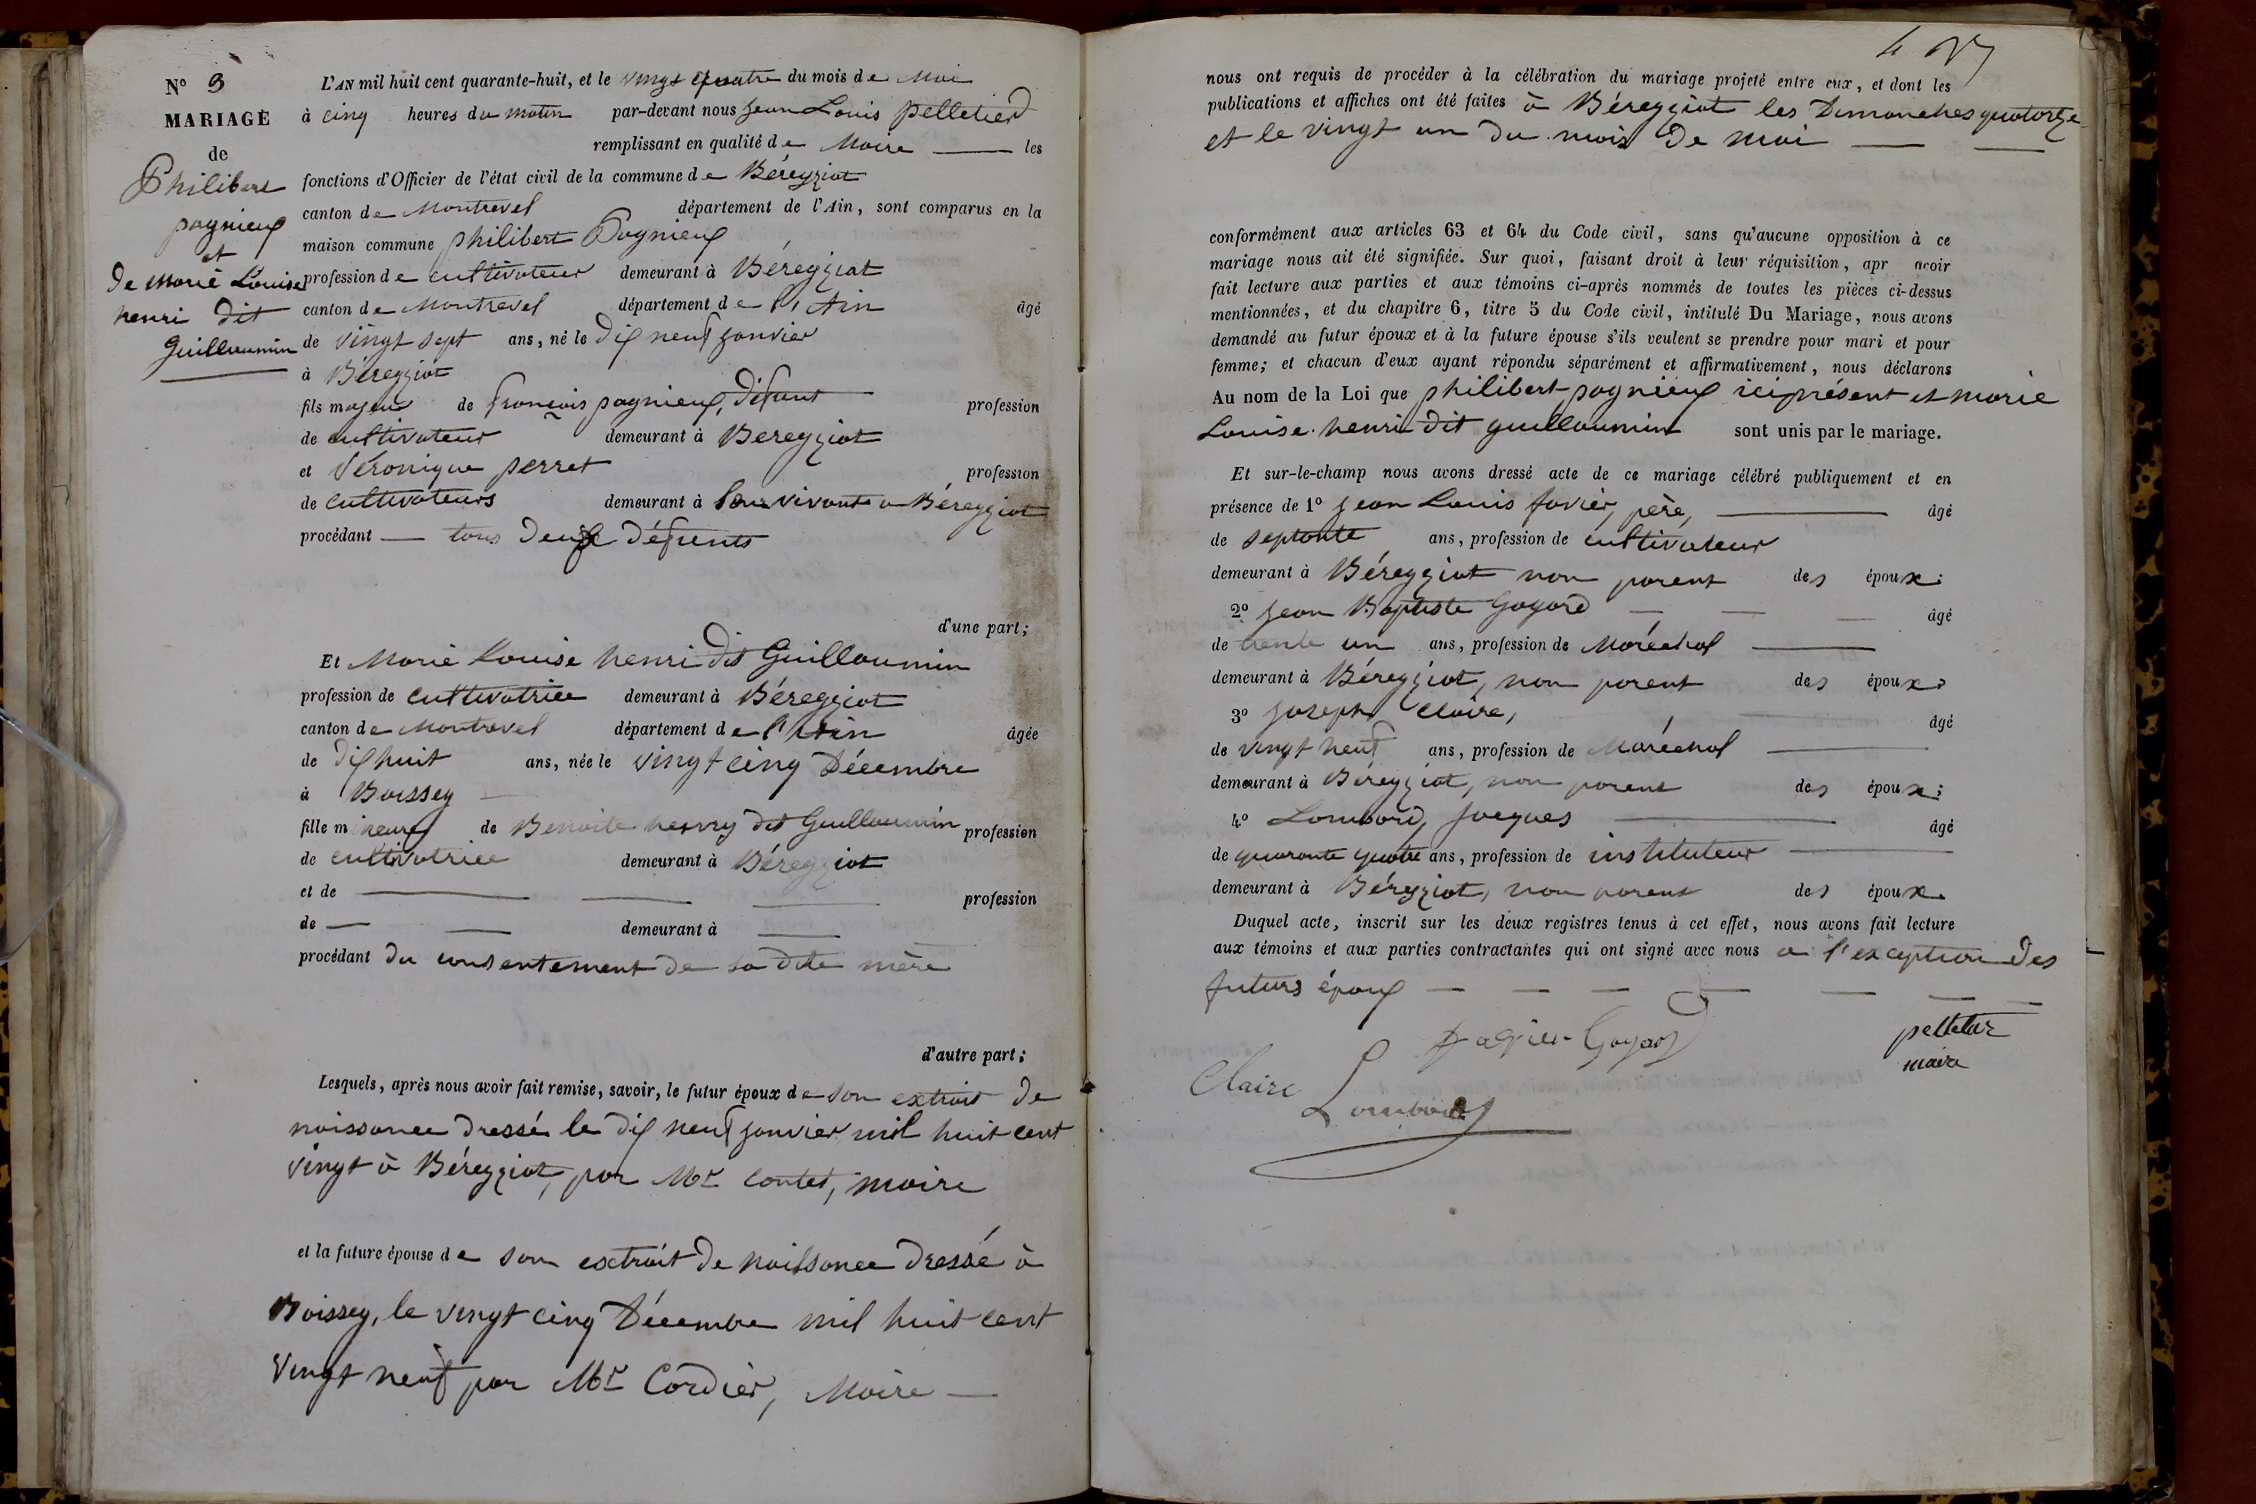 N° 3
MARIAGE
de
Philibert
pagnieux
et
de marie Louise
henri dit
Guillaumin
L'AN mil huit cent quarante-huit, et le vingt quatre du mois de Mai
à cinq heures du matin par-devant nous Jean Louis Pelletier
remplissant en qualité de Maire les
fonctions d'Officier de l'état civil de la commune de Béreyziat
canton de Montrevel département de l'Ain, sont comparus en la
maison commune philibert Pagnieux
profession de cultivateur demeurant à Béreyziat
canton de Montrevel département de l'Ain âgé
de vingt sept ans, né le dix neuf janvier
à Béreyziat
fils majeur de françois pagnieux, défunt profession
de cultivateur demeurant à Bereyziat
et Véronique perret profession
de cultivateurs demeurant à Survivante a Béreyziat
procédant tous deux défunts
d'une part;
Et Marie Louise henri dit Guillaumin
profession de cultivatrice demeurant à Béreyziat
canton de Montrevel département de l'Ain âgée
de dix huit ans, née le vingt cinq Décembre
à Boissey
fille mineure de Benoite henry dit Guillaumin profession
de cultivatrice demeurant à Béreyziat
et de profession
de demeurant à
procédant du consentement de sa dite mère
d'autre part;
Lesquels, après nous avoir fait remise, savoir, le futur époux de son extrait de
naissance dressé le dix neuf janvier mil huit cent
vingt à Béreyziat, par Mr Contet, maire
et la future épouse de son extrait de naissance dressé à
Boissey, le vingt cinq Décembre mil huit cent
vingt neuf par Mr Cordier, Maire
4
nous ont requis de procéder à la célébration du mariage projeté entre eux, et dont les
publications et affiches ont été faites à Béreyziat les Dimanches quatorze
et le vingt un du mois de mai
conformément aux articles 63 et 64 du Code civil, sans qu'aucune opposition à ce
mariage nous ait été signifiée. Sur quoi, faisant droit à leur réquisition, apr avoir
fait lecture aux parties et aux témoins ci-après nommés de toutes les pièces ci-dessus
mentionnées, et du chapitre 6, titre 5 du Code civil, intitulé Du Mariage, nous avons
demandé au futur époux et à la future épouse s'ils veulent se prendre pour mari et pour
femme; et chacun d'eux ayant répondu séparément et affirmativement, nous déclarons
Au nom de la Loi que philibert pagnieux ici présent et marie
Louise henri dit guillaumin sont unis par le mariage.
Et sur-le-champ nous avons dressé acte de ce mariage célébré publiquement et en
présence de 1° Jean Louis favier, père, âgé
de septante ans, profession de cultivateur
demeurant à Béreyziat non parent des époux;
2° Jean Baptiste Goyard âgé
de trente un ans, profession de Maréchal
demeurant à Béreyziat, non parent des époux;
3° Joseph Claire, âgé
de vingt neuf ans, profession de Maréchal
demeurant à Béreyziat, non parent des époux;
4° Lombard, Jacques âgé
de quarante quatre ans, profession de instituteur
demeurant à Béreyziat, non parent des époux.
Duquel acte, inscrit sur les deux registres tenus à cet effet, nous avons fait lecture
aux témoins et aux parties contractantes qui ont signé avec nous a l'exception des
futurs époux
Goyard
pelletier
maire
Claire
Lombard